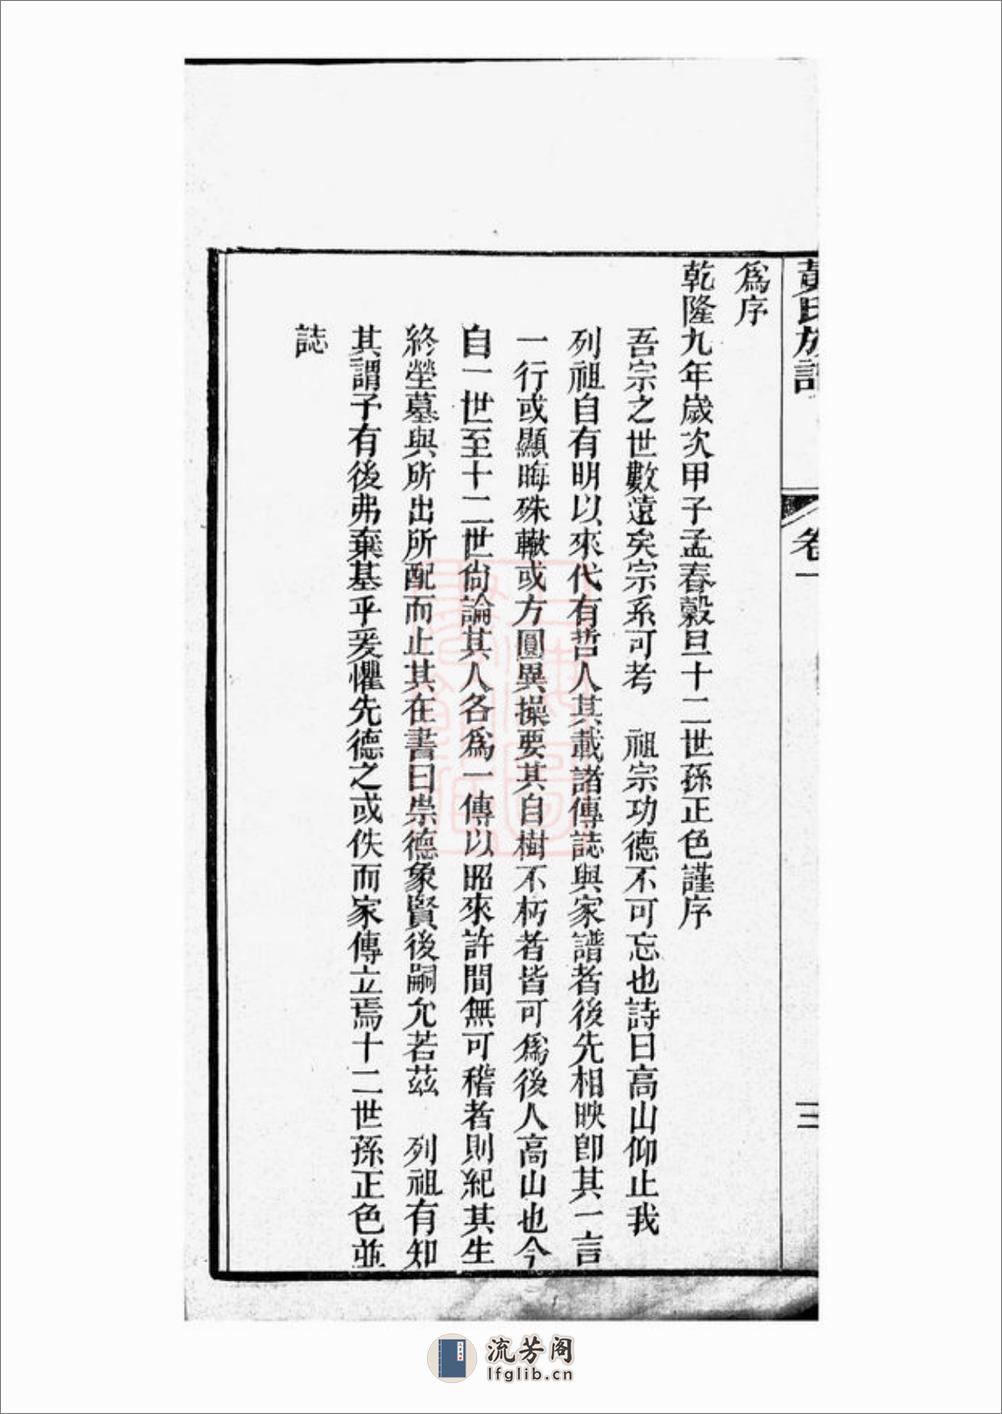 黃氏族譜
卷一
三
爲序
乾隆九年歲次甲子孟春穀旦十二世孫正色謹序
吾宗之世數遠矣宗系可考　祖宗功德不可忘也詩曰高山仰止我
列祖自有明以來代有哲人其載諸傳誌與家譜者後先相映卽其一言
一行或顯晦殊轍或方圓異操要其自樹不朽者皆可爲後人高山也今
自一世至十二世尙論其人各爲一傳以昭來許間無可稽者則紀其生
終塋墓與所出所配而止其在書曰崇德象賢後嗣允若茲　列祖有知
其謂予有後弗棄基乎爰懼先德之或佚而家傳立焉十二世孫正色並
誌
流芳阁
lfglib.cn